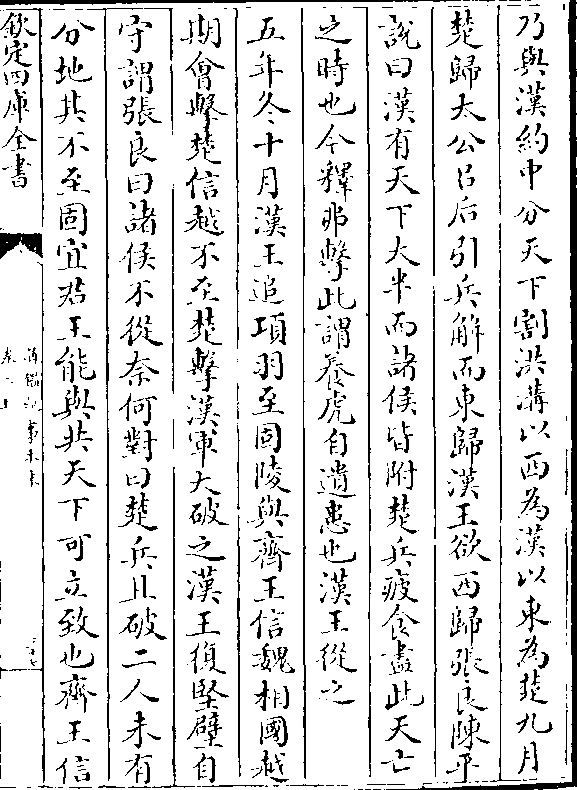 乃與漢約中分天下割洪溝以西為漢以東為楚九月
楚歸太公吕后引兵解而東歸漢王欲西歸張良陳平
說曰漢有天下大半而諸侯皆附楚兵疲食盡此天亡
之時也今釋弗擊此謂養虎自遺患也漢王從之
五年冬十月漢王追項羽至固陵與齊王信魏相國越
期會擊楚信越不至楚擊漢軍大破之漢王復堅壁自
守謂張良曰諸侯不從奈何對曰楚兵且破二人未有
分地其不至固宜君王能與共天下可立致也齊王信
欽定四庫全書